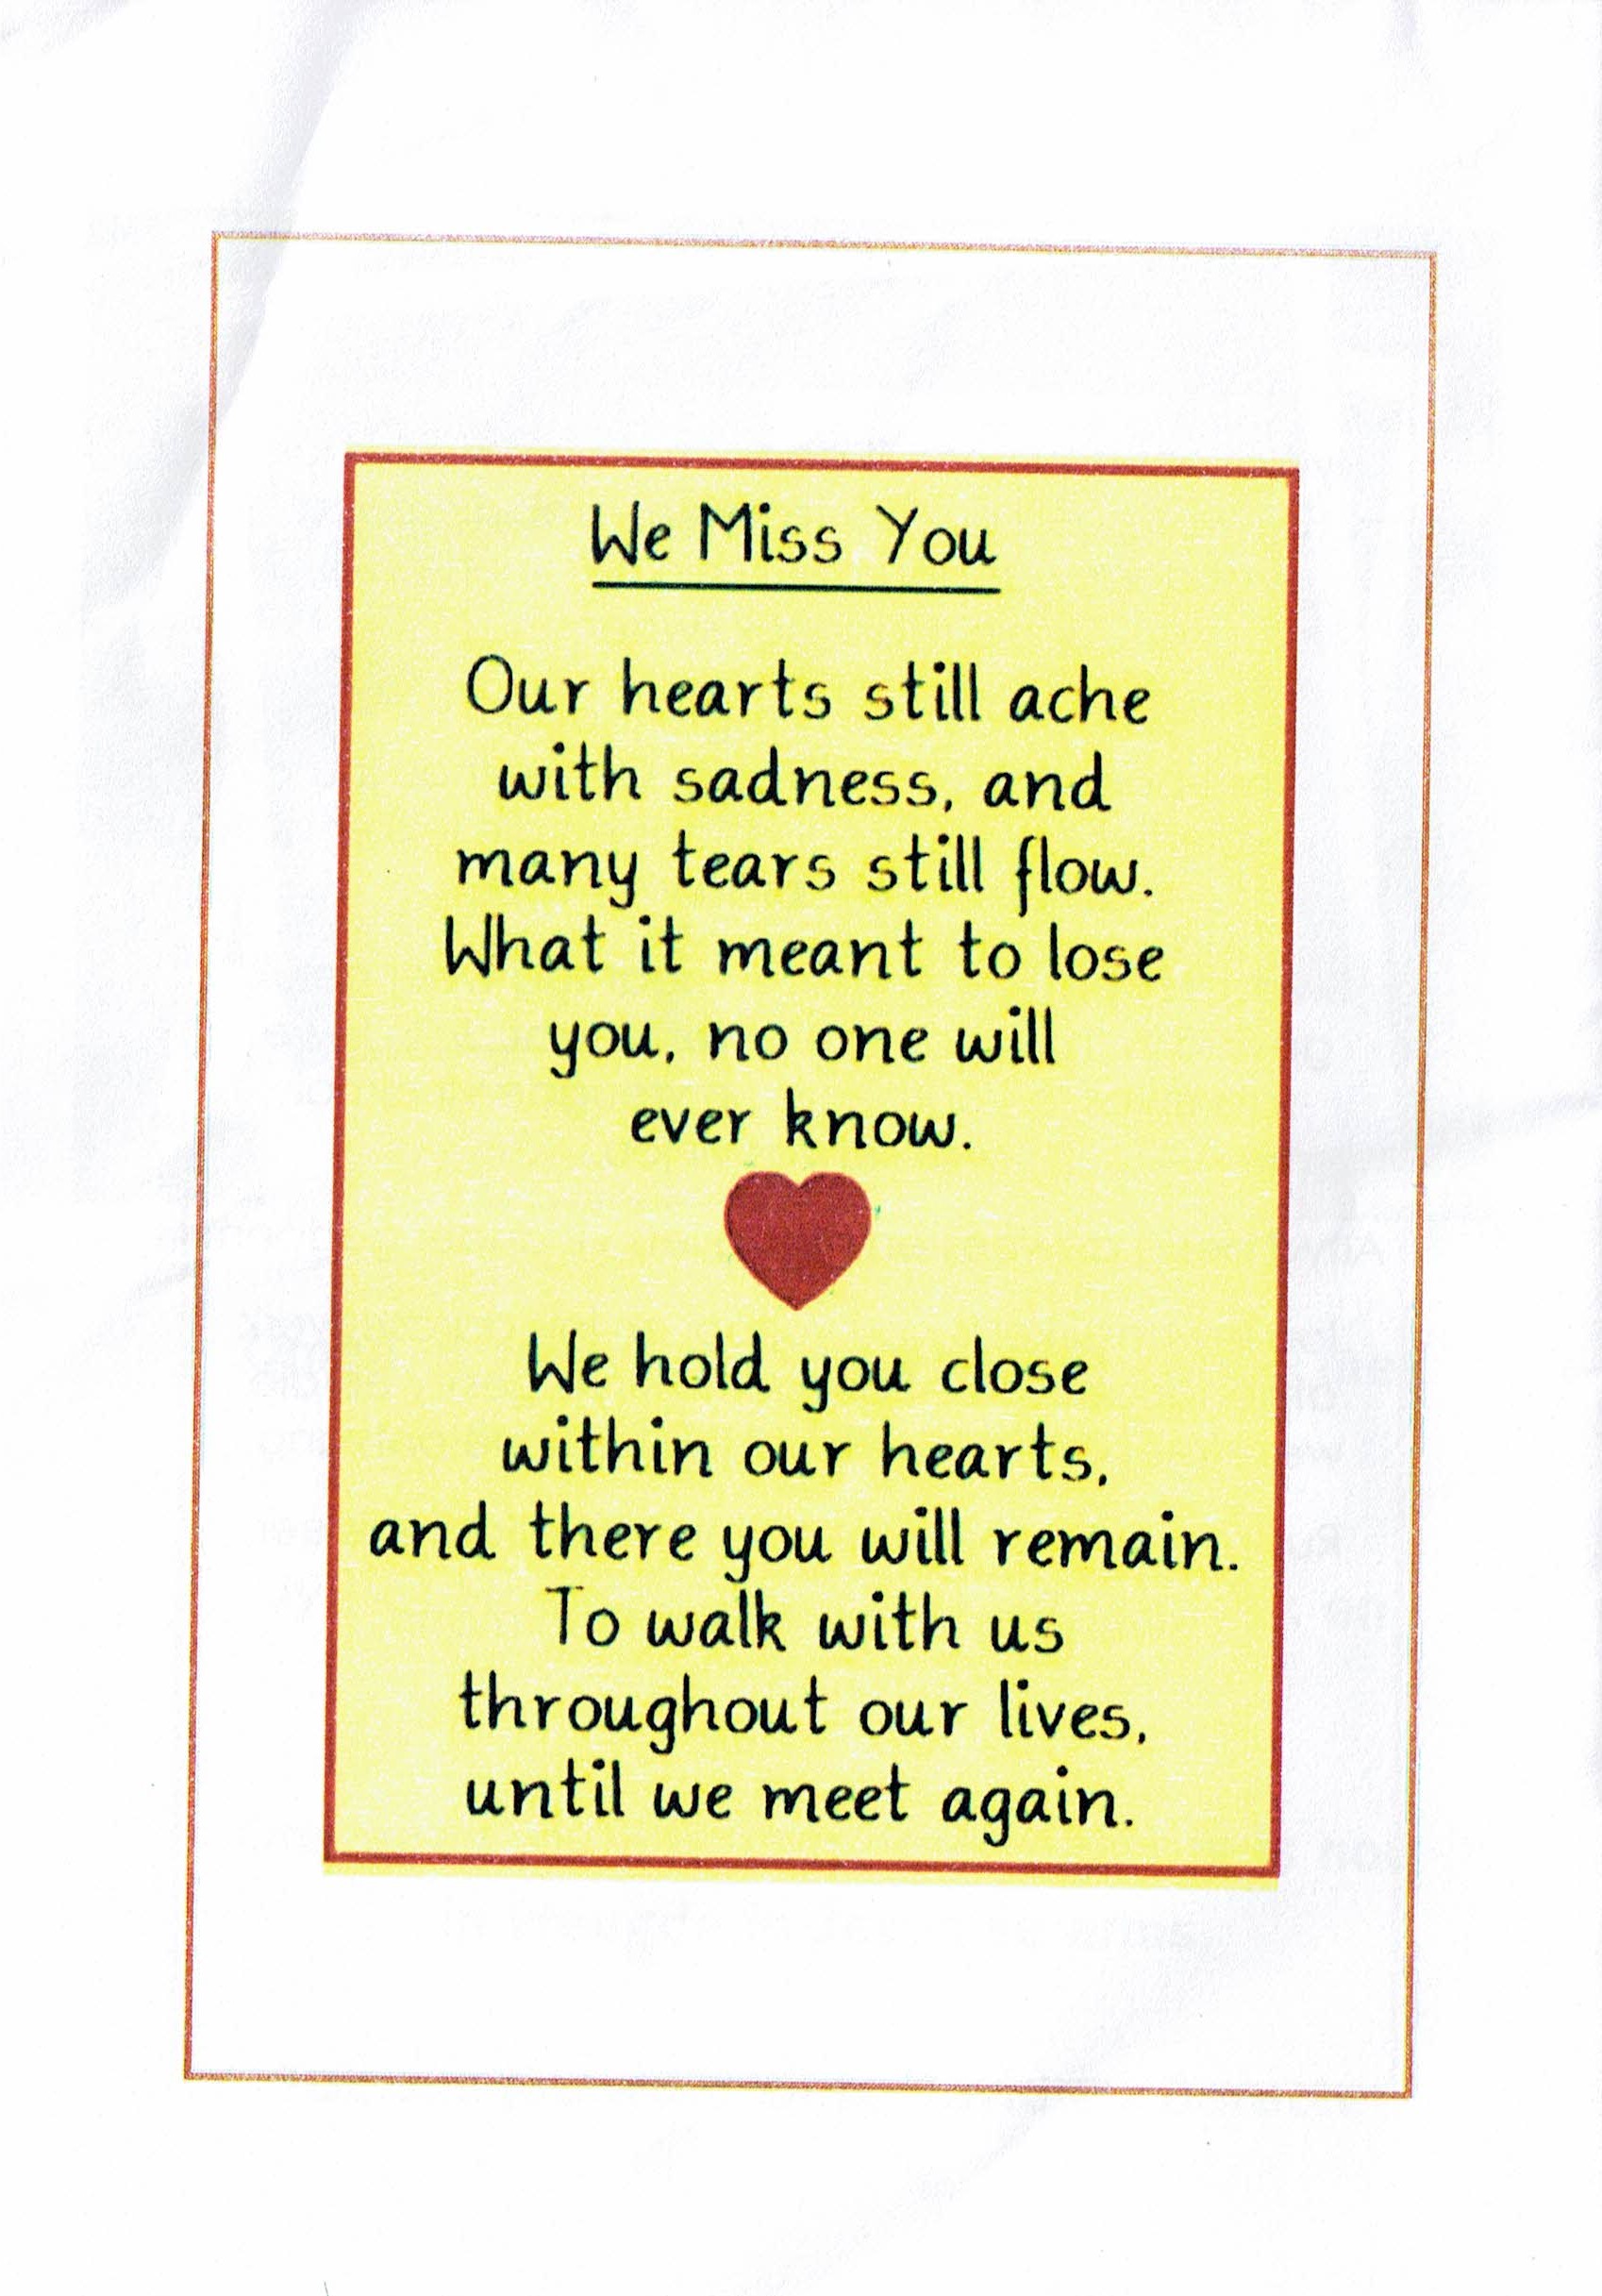 We Miss You
Our hearts still ache
with sadness, and
many tears still flow.
What it meant to lose
you, no one will
ever know.
We hold you close
within our hearts,
and there you will remain.
To walk with us
throughout our lives,
until we meet again.